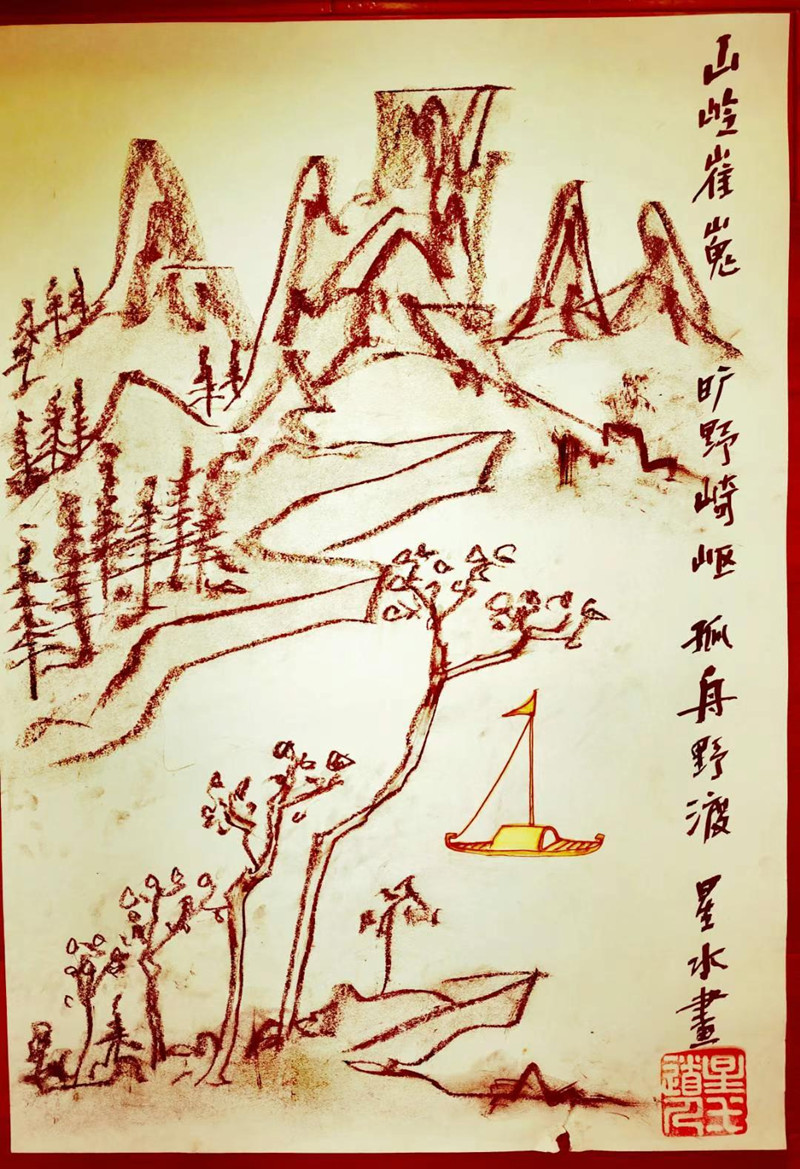 山崔嵬 旷野崎岖 孤舟野渡 星水畫
星水道人